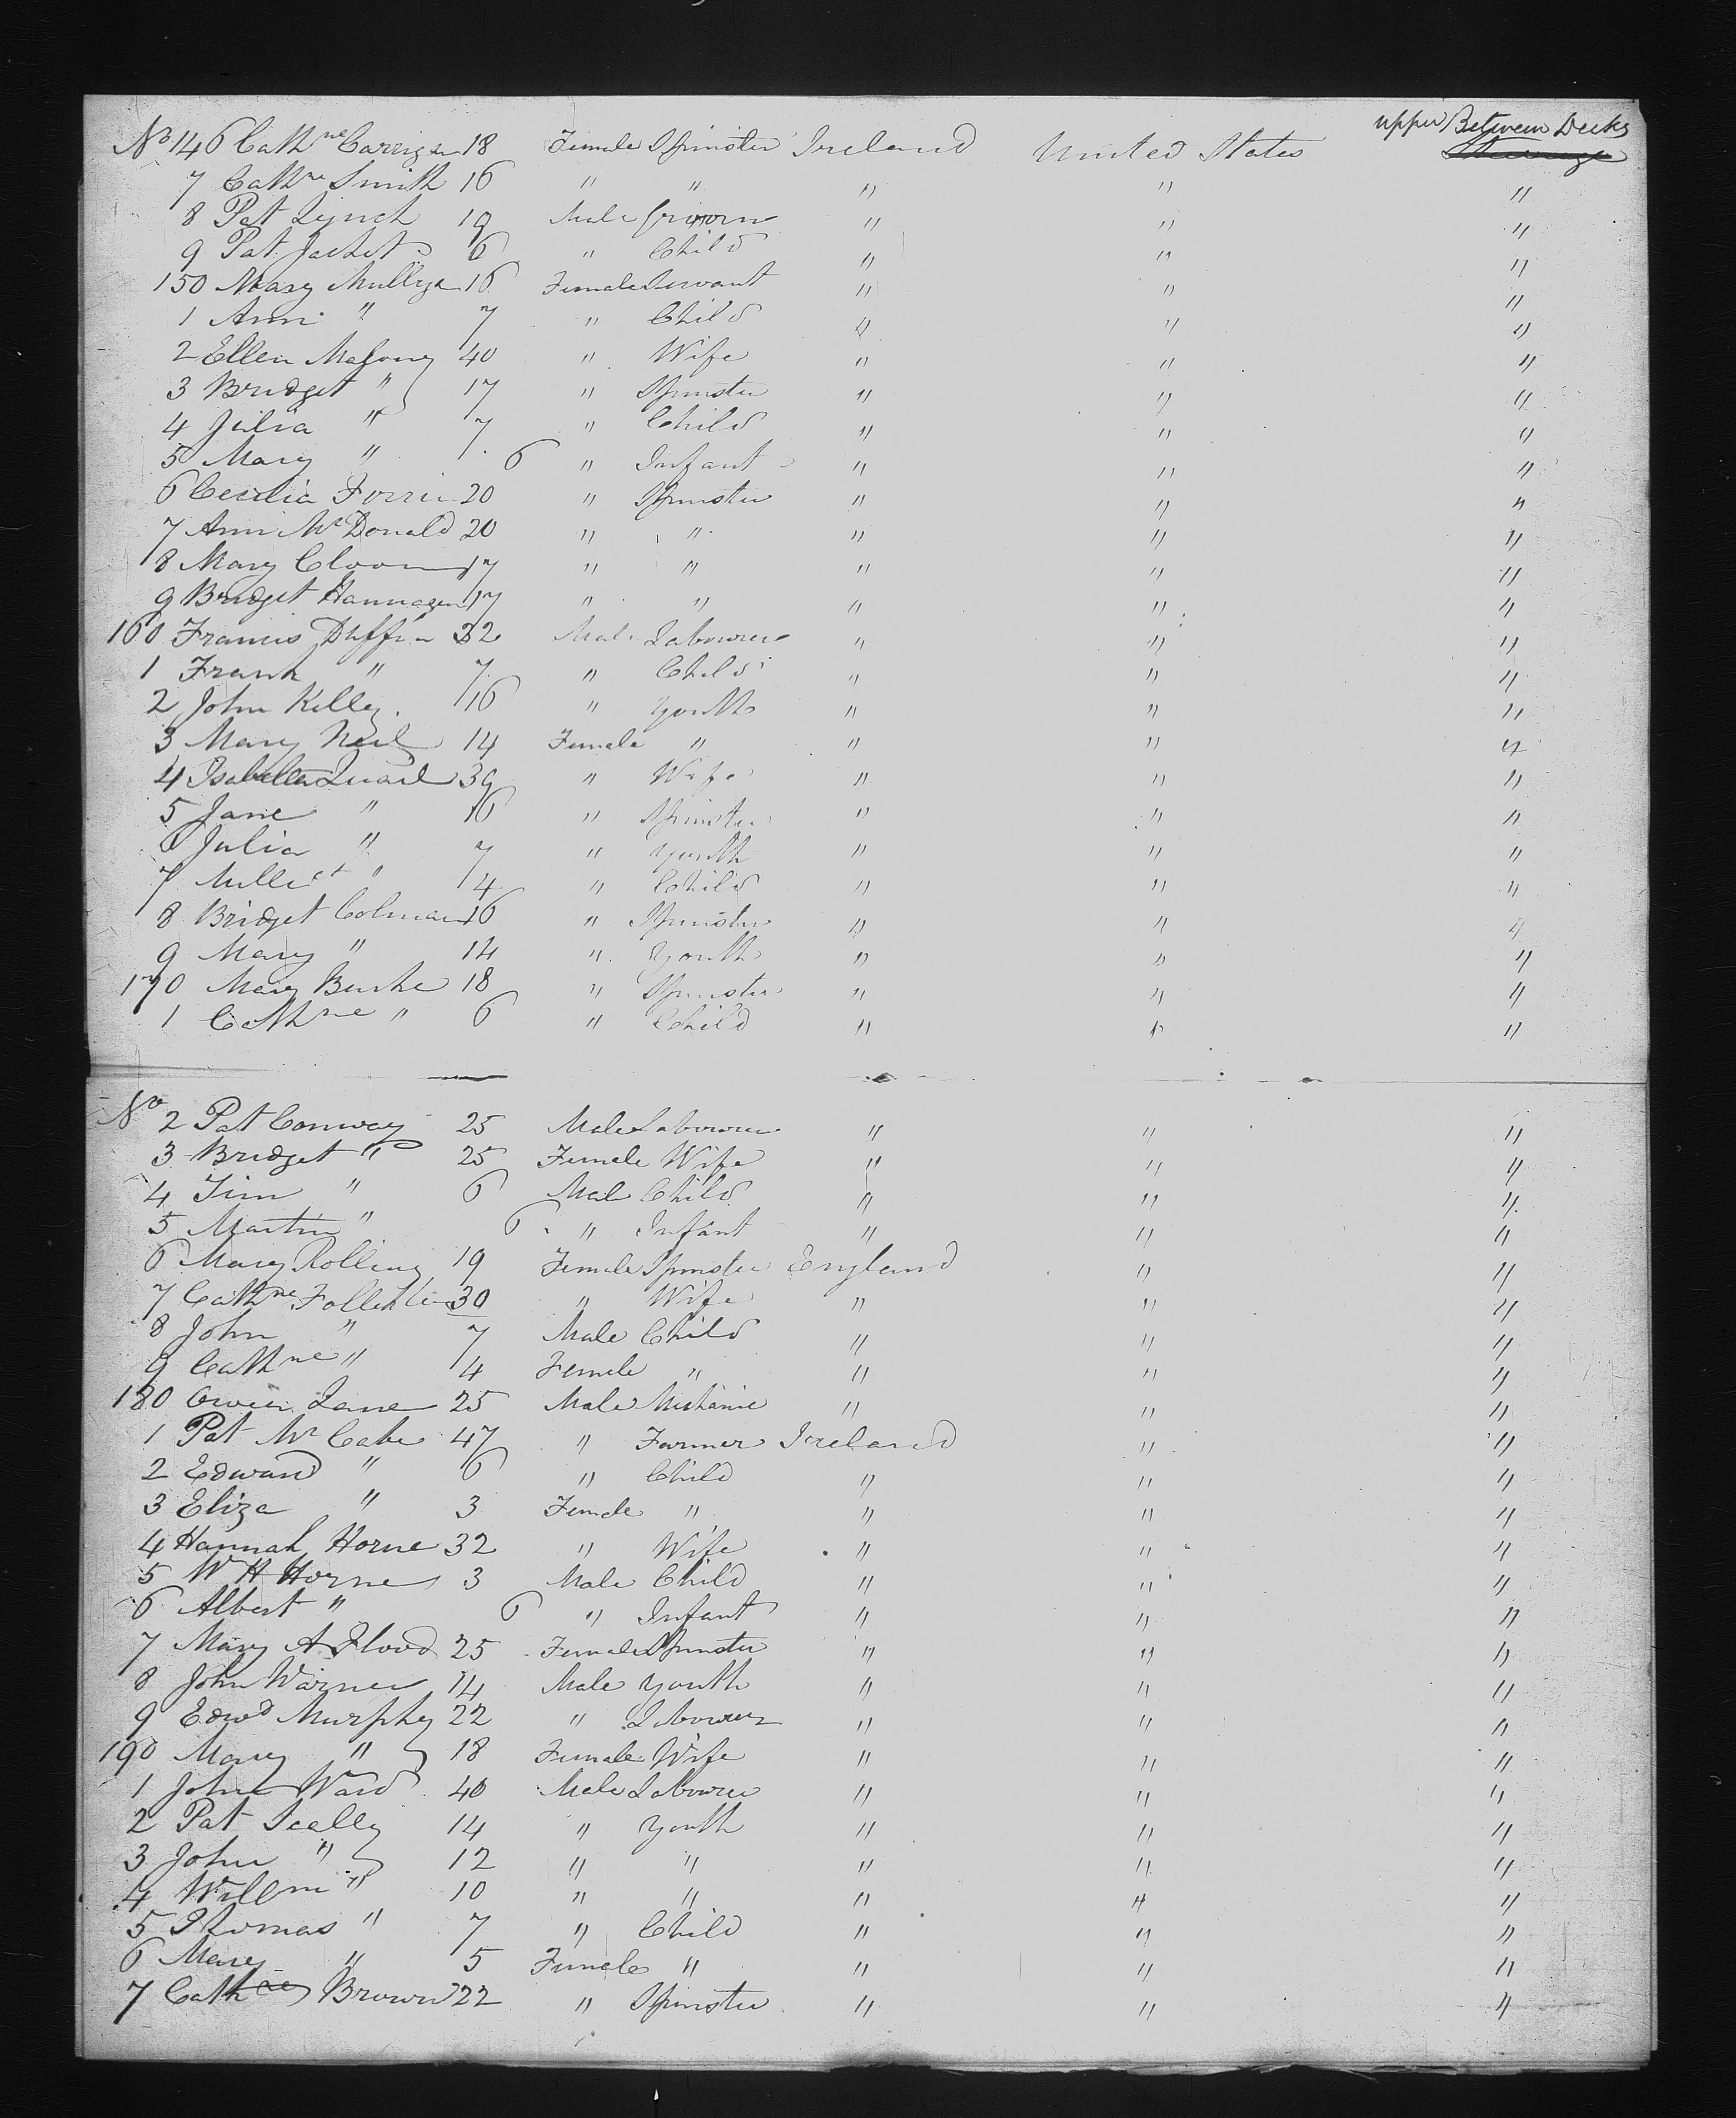 upper Between Decks
No 146 Cathne Carrigan 18 Female Spinster Ireland United States
7 Cathne Smith 16 " " " " "
8 Pat Lynch 19 Male " " "
9 Pat 6 " Child " " "
150 Mary Mulligan 16 Female Servant " " "
1 Ann " 7 " Child " " "
2 Ellen Mahony 40 " Wife " " "
3 Bridget " 17 " Spinster " " "
4 Julia " 7 " Child " " "
5 Mary " 6 " Infant " " "
6 Cecilia 20 " Spinster " " "
7 Ann McDonald 20 " " " " "
8 Mary 17 " " " " "
9 Bridget Hannagan 17 " " " " "
160 Francis Duffin 32 Male Labourer " " "
1 Frank " 7 " Child " " "
2 John Kelley 16 " Youth " " "
3 Mary Neil 14 Female " " " "
4 Isabella Quail 39 " Wife " " "
5 Jane " 16 " Spinster " " "
6 Julia " 7 " Youth " " "
7 " 4 " Child " " "
8 Bridget Colman 16 " Spinster " " "
9 Mary " 14 " Youth " " "
170 Mary Burke 18 " Spinster " " "
1 Cathne " 6 " Child " " "
No 2 Pat Conway 25 Male Labourer " " "
3 Bridget " 25 Female Wife " " "
4 Tim " 6 Male Child " " "
5 Martin " 6 " Infant " " "
6 Mary Rolling 19 Female Spinster England " "
7 Cathne 30 " Wife " " "
8 John " 7 Male Child " " "
9 Cathne " 4 Female " " " "
180 Owen Lane 25 Male Mechanic " " "
1 Pat McCabe 47 " Farmer Ireland " "
2 Edward " 6 " Child " " "
3 Eliza " 3 Female " " " "
4 Hannah Horne 32 " Wife " " "
5 W H Horne 3 Male Child " " "
6 Albert " 6 " Infant " " "
7 Mary A Flood 25 Female Spinster " " "
8 John Warner 14 Male Youth " " "
9 Edwd Murphy 22 " Labourer " " "
190 Mary " 18 Female Wife " " "
1 John Ward 40 Male Labourer " " "
2 Pat Scelly 14 " Youth " " "
3 John " 12 " " " " "
4 Willm " 10 " " " " "
5 Thomas " 7 " Child " " "
6 Mary " 5 Female " " " "
7 Cathne Brown 22 " Spinster " " "